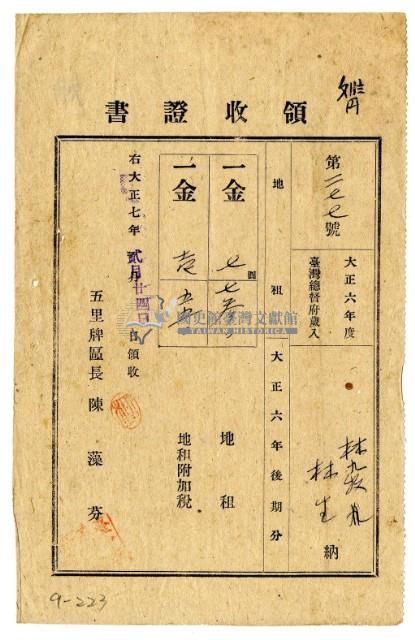 領收證書
第二七七號
大正六年度
臺灣總督府歲入
納
林生
地租
大正六年後期分
一金
圓
地租
一金
地租附加稅
右大正七年貳月廿四日領收
五里牌區長 陳藻芬
國史館臺灣文獻館
TAIWAN HISTORICA
9-223